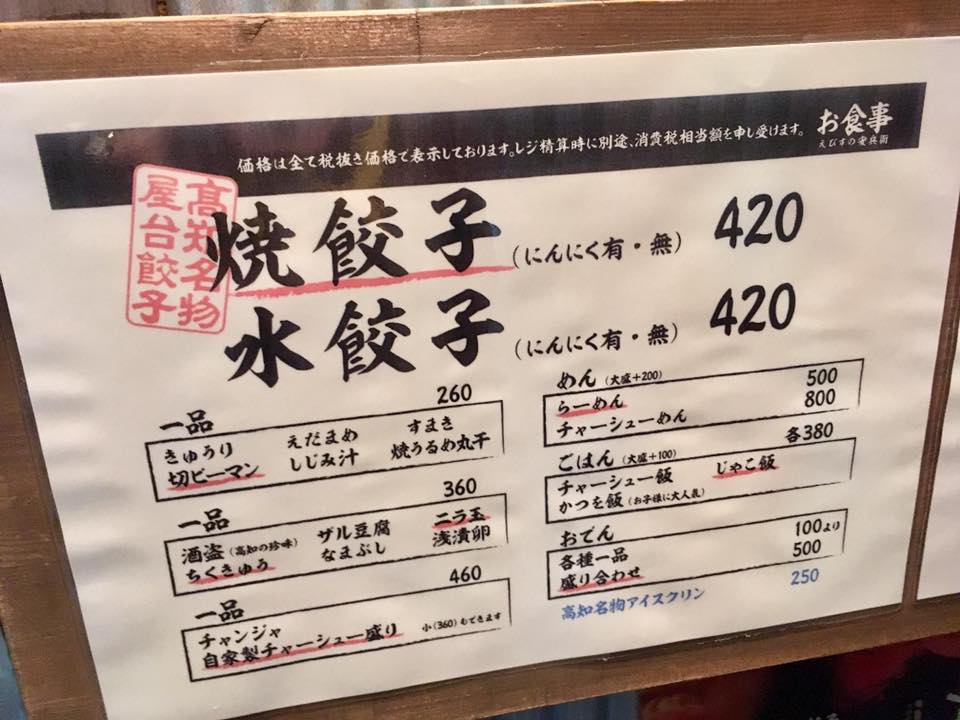 お食事
えびすの安兵衛
価格は全て税抜き価格で表示しております。レジ精算時に別途、消費税相当額を申し受けます。
高知名物
屋台餃子
焼餃子(にんにく有・無) 420
水餃子(にんにく有・無) 420
一品 260
きゅうり えだまめ すまき
切ピーマン しじみ汁 焼うるめ丸干
一品 360
酒盗(高知の珍味) ザル豆腐 ニラ玉
ちくきゅう なまぶし 浅漬卵
一品 460
チャンジャ
自家製チャーシュー盛り 小(360)もできます
めん(大盛+200)
らーめん 500
チャーシューめん 800
ごはん(大盛+100) 各380
チャーシュー飯 じゃこ飯
かつを飯(お子様に大人気)
おでん
各種一品 100より
盛り合わせ 500
高知名物アイスクリン 250